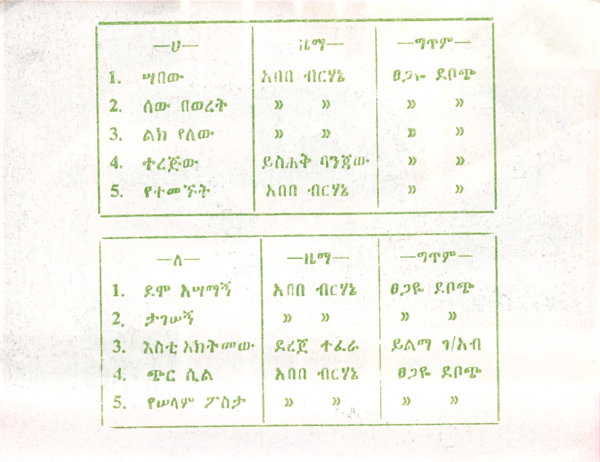 —ሀ— ዜማ— —ግጥም—
1. ሣበው አበበ ብርሃኔ ፀጋዬ ደቦጭ
2. ሰው በወረት » » » »
3. ልክ የለው » » » »
4. ተረጅው ይስሐቅ ባንጃው » »
5. የተመኙት አበበ ብርሃኔ » »
—ለ— —ዜማ— —ግጥም—
1. ደሞ አሣማኝ አበበ ብርሃኔ ፀጋዬ ደቦጭ
2. ታገሠኝ » » » »
3. እስቲ አክትመው ደረጀ ተፈራ ይልማ ገ/አብ
4. ጭር ሲል አበበ ብርሃኔ ፀጋዬ ደቦጭ
5. የሠላም ፖስታ » » » »